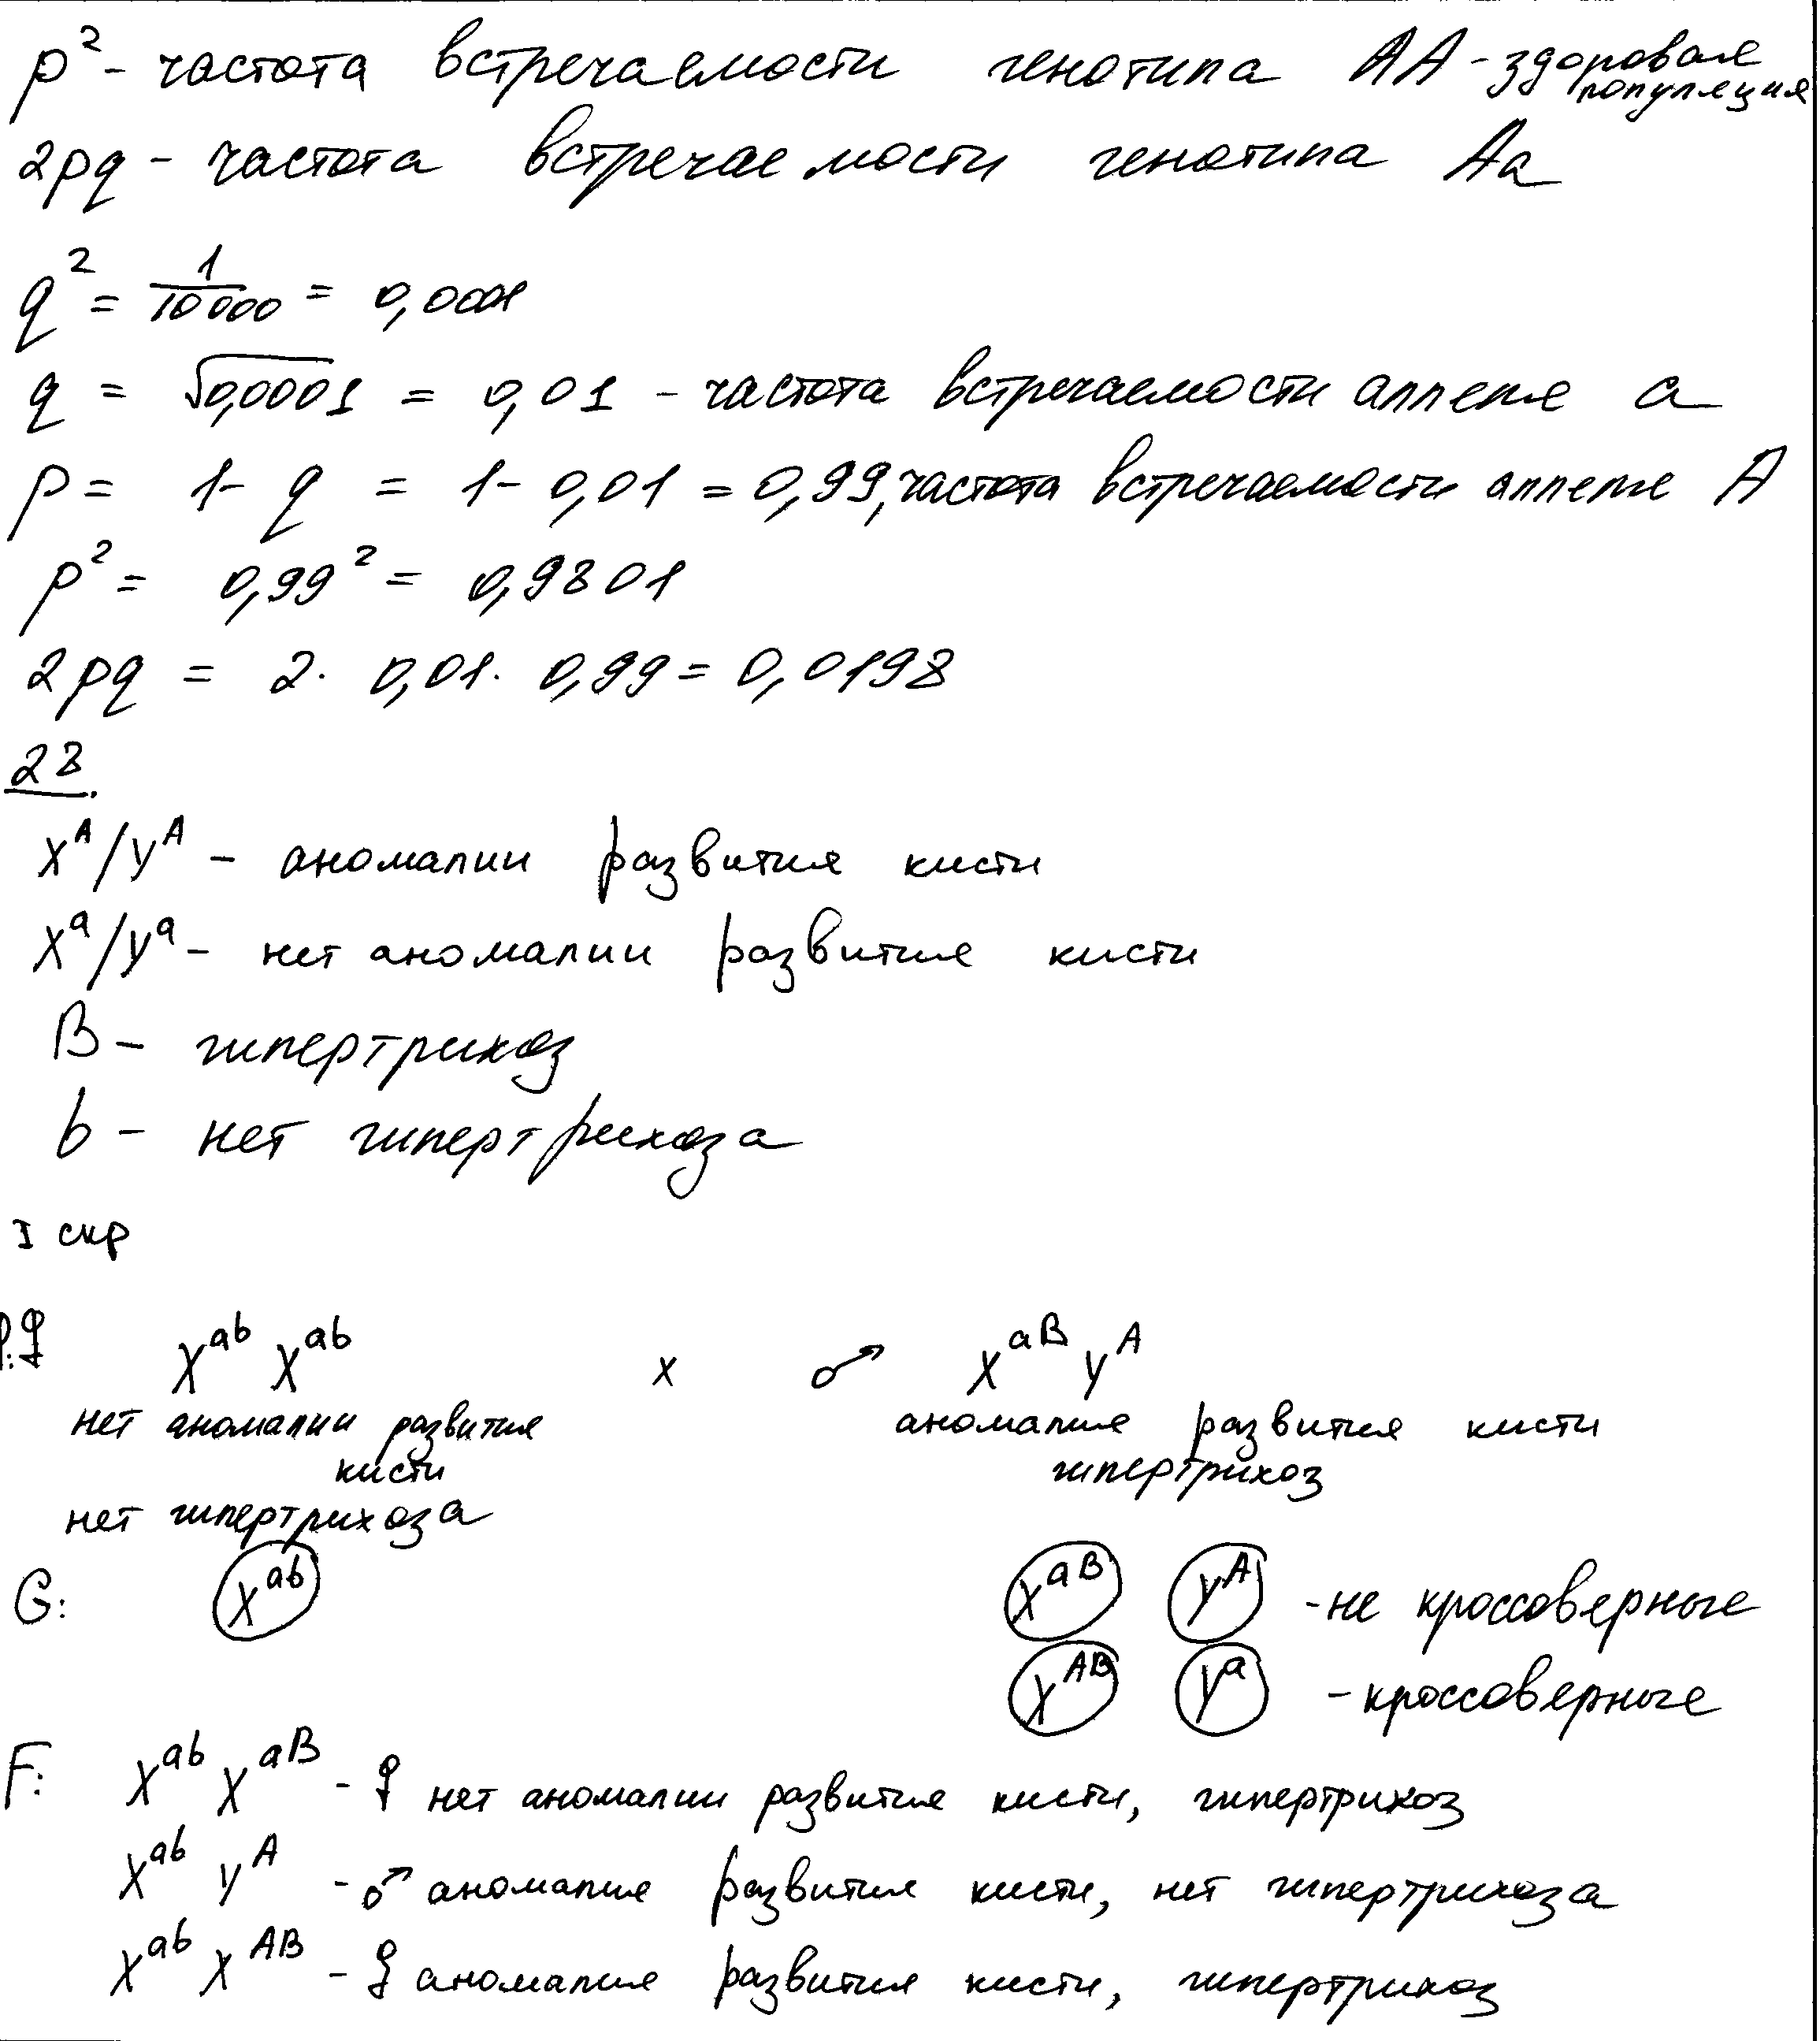 p² - частота встречаемости генотипа AA - здоровая популяция
2pq - частота встречаемости генотипа Aa
q² = 1/10000 = 0,0001
q = √0,0001 = 0,01 - частота встречаемости аллеля a
p = 1 - q = 1 - 0,01 = 0,99, частота встречаемости аллеля A
p² = 0,99² = 0,9801
2pq = 2 · 0,01 · 0,99 = 0,0198
28.
X^A/Y^A - аномалии развития кисти
X^a/Y^a - нет аномалии развития кисти
B - гипертрихоз
b - нет гипертрихоза
I скр
P: ♀ X^ab X^ab x ♂ X^aB Y^A
нет аномалии развития кисти аномалия развития кисти
нет гипертрихоза гипертрихоз
G: X^ab X^aB Y^A - не кроссоверные
X^AB Y^a - кроссоверные
F: X^ab X^aB - ♀ нет аномалии развития кисти, гипертрихоз
X^ab Y^A - ♂ аномалия развития кисти, нет гипертрихоза
X^ab X^AB - ♀ аномалия развития кисти, гипертрихоз